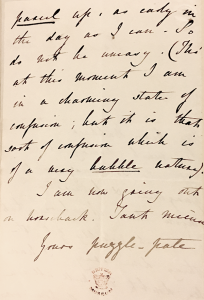 parcel up, as early in
the day as I can. So
do not be uneasy. (This
at this moment I am
in a charming state of
confusion; but it is that
sort of confusion which is
of a very bubble nature).
I am now going out
on horseback. Tanto meno
Yours puggle-pate